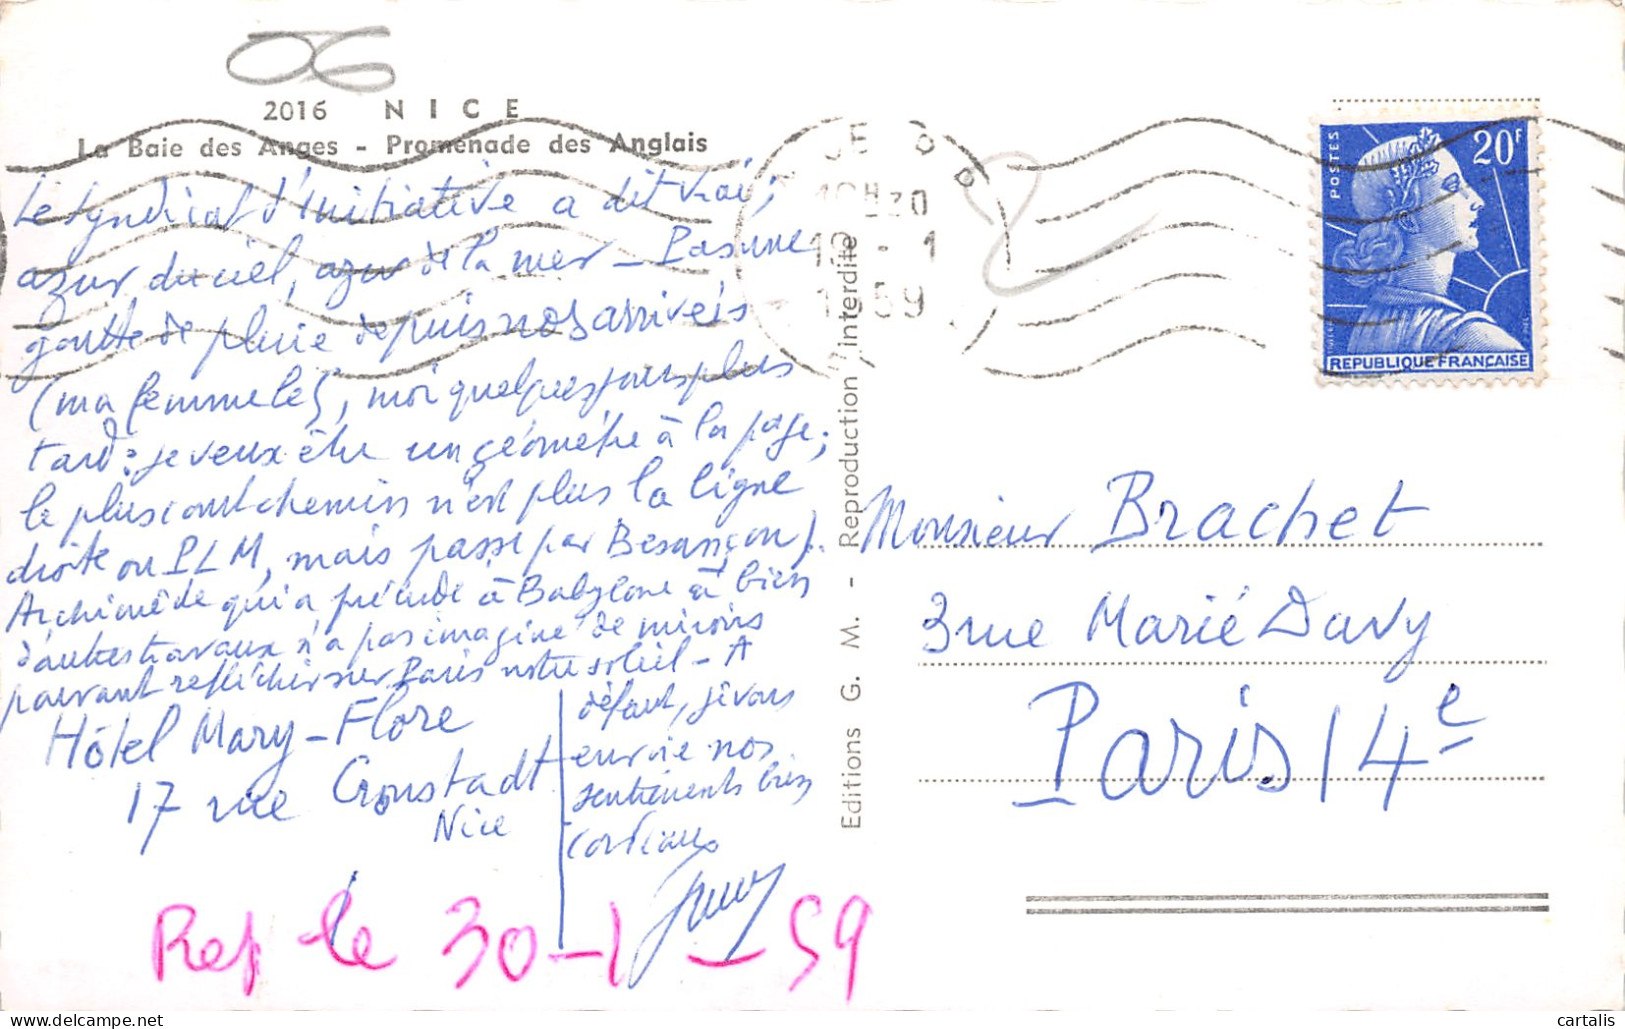 06
2016 NICE
La Baie des Anges - Promenade des Anglais
Le Syndicat d'Initiative a dit vrai;
azur du ciel, azur de la mer - Pas une
goutte de pluie depuis nos arrivées
(ma femme le 5, moi quelques jours plus
tard: je veux être un géomètre à la page;
le plus court chemin n'est plus la ligne
droite ou PLM, mais passe par Besançon).
Archimède qui a prélude à Babylone et bien
d'autres travaux n'a pas imaginé de miroirs
pouvant réfléchir sur Paris notre soleil - A
défaut, je vous
envoie nos
sentiments bien
cordiaux
Hôtel Mary-Flore
17 rue Cronstadt
Nice
Rep le 30-1-59
Editions G. M. - Reproduction interdite
10H30
1 - 1
1959
POSTES
20F
REPUBLIQUE FRANÇAISE
Monsieur Brachet
3 rue Marié Davy
Paris 14e
cartalis